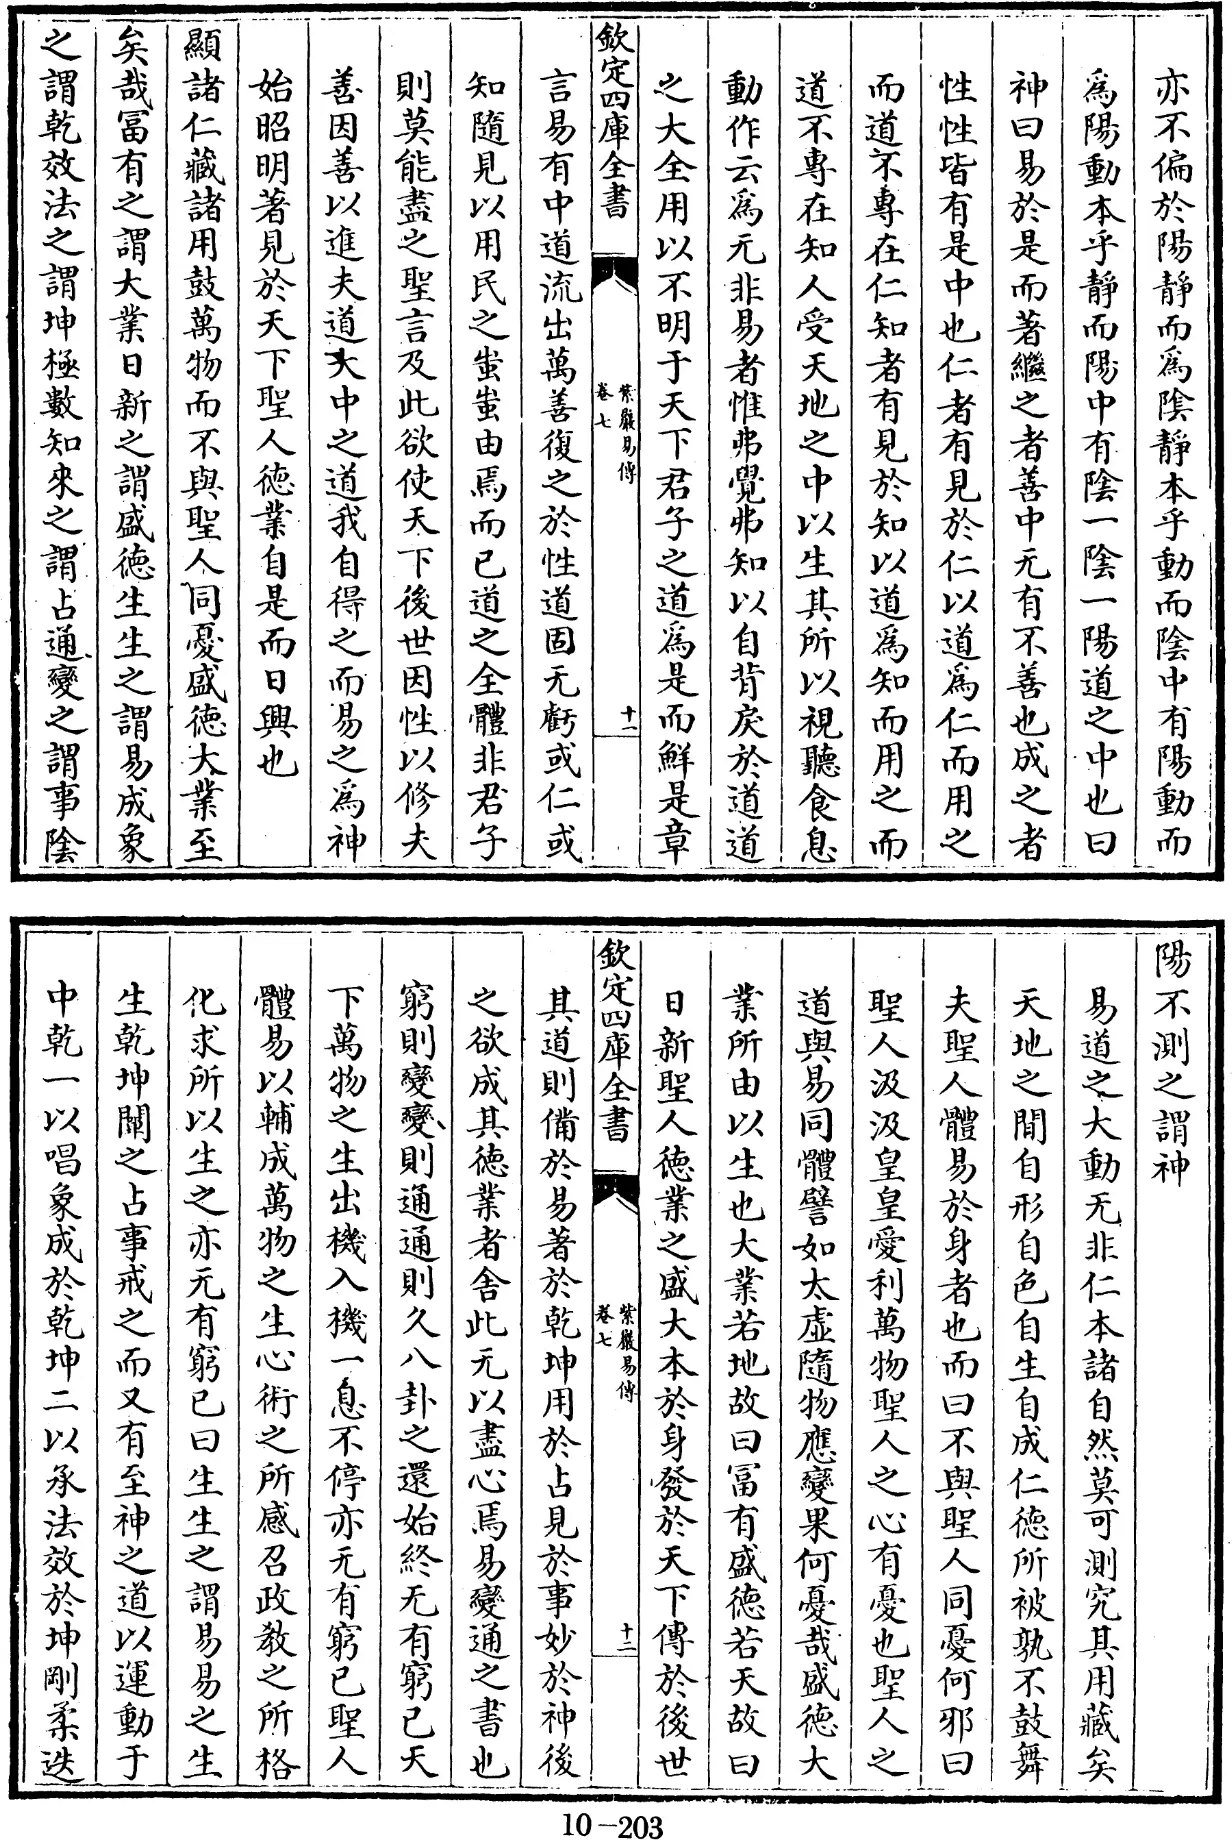 亦不偏於陽静而爲隂静本乎動而陰中有陽動而
爲陽動本乎靜而陽中有陰一陰一陽道之中也曰
神曰易於是而著繼之者善中无有不善也成之者
性性皆有是中也仁者有見於仁以道爲仁而用之
而道不專在仁知者有見於知以道爲知而用之而
道不專在知人受天地之中以生其所以視聽食息
動作云爲无非易者惟弗覺弗知以自背戾於道道
之大全用以不明于天下君子之道爲是而鮮是章
欽定四庫全書
紫巖易傳
卷七
十一
言易有中道流出萬善復之於性道固无虧或仁或
知隨見以用民之蚩蚩由焉而已道之全體非君子
則莫能盡之聖言及此欲使天下後世因性以修夫
善因善以進夫道大中之道我自得之而易之爲神
始昭明著見於天下聖人徳業自是而日興也
顯諸仁藏諸用鼓萬物而不與聖人同憂盛徳大業至
矣哉冨有之謂大業日新之謂盛徳生生之謂易成象
之謂乾效法之謂坤極數知來之謂占通變之謂事陰
陽不測之謂神
易道之大動无非仁本諸自然莫可測究其用藏矣
天地之間自形自色自生自成仁德所被孰不鼓舞
夫聖人體易於身者也而曰不與聖人同憂何邪曰
聖人汲汲皇皇愛利萬物聖人之心有憂也聖人之
道與易同體譬如太虛隨物應變果何憂哉盛徳大
業所由以生也大業若地故曰冨有盛徳若天故曰
日新聖人徳業之盛大本於身發於天下傳於後世
欽定四庫全書
紫巖易傳
卷七
十二
其道則備於易著於乾坤用於占見於事妙於神後
之欲成其徳業者舍此无以盡心焉易變通之書也
窮則變變則通通則久八卦之還始終无有窮已天
下萬物之生出機入機一息不停亦无有窮已聖人
體易以輔成萬物之生心術之所感召政教之所格
化求所以生之亦无有窮已曰生生之謂易易之生
生乾坤闡之占事戒之而又有至神之道以運動于
中乾一以唱象成於乾坤二以承法效於坤剛柔迭
10-203